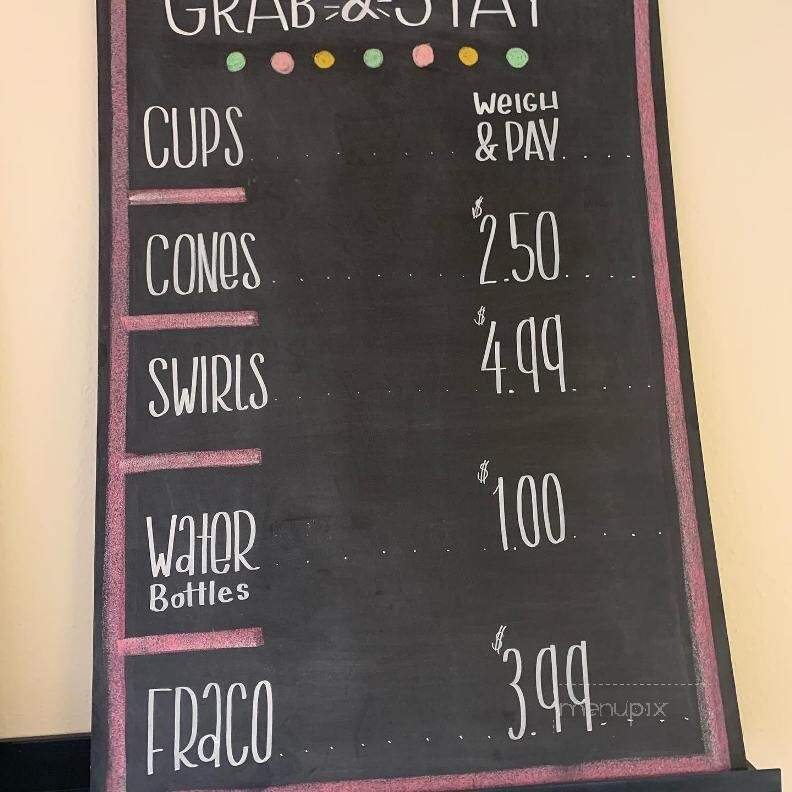 GRAB & STAY
CUPS . . . . . . . WEIGH & PAY. . . . .
CONES . . . . . . . $2.50. . . . .
SWIRLS . . . . . . . $4.99. . . . .
WATER . . . . . . . $1.00. . . . .
Bottles
FRACO . . . . . . . $3.99. . . . .
menupix